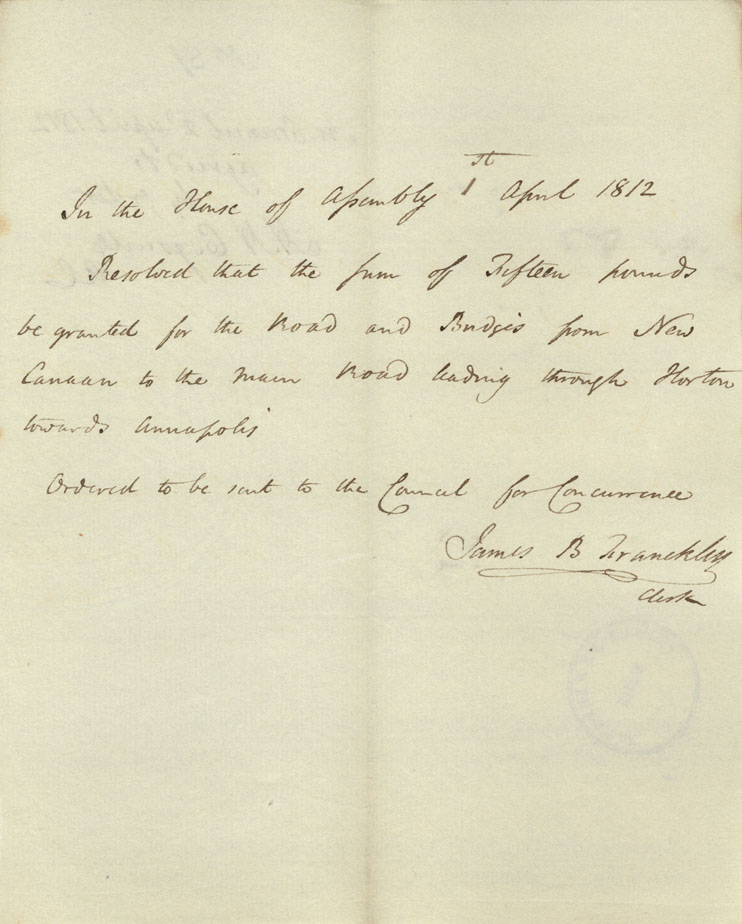 In the House of Assembly 1st April 1812
Resolved that the sum of Fifteen pounds
be granted for the Road and Bridges from New
Canaan to the main Road leading through Horton
towards Annapolis
Ordered to be sent to the Council for Concurrence
James B Franckleyn
Clerk